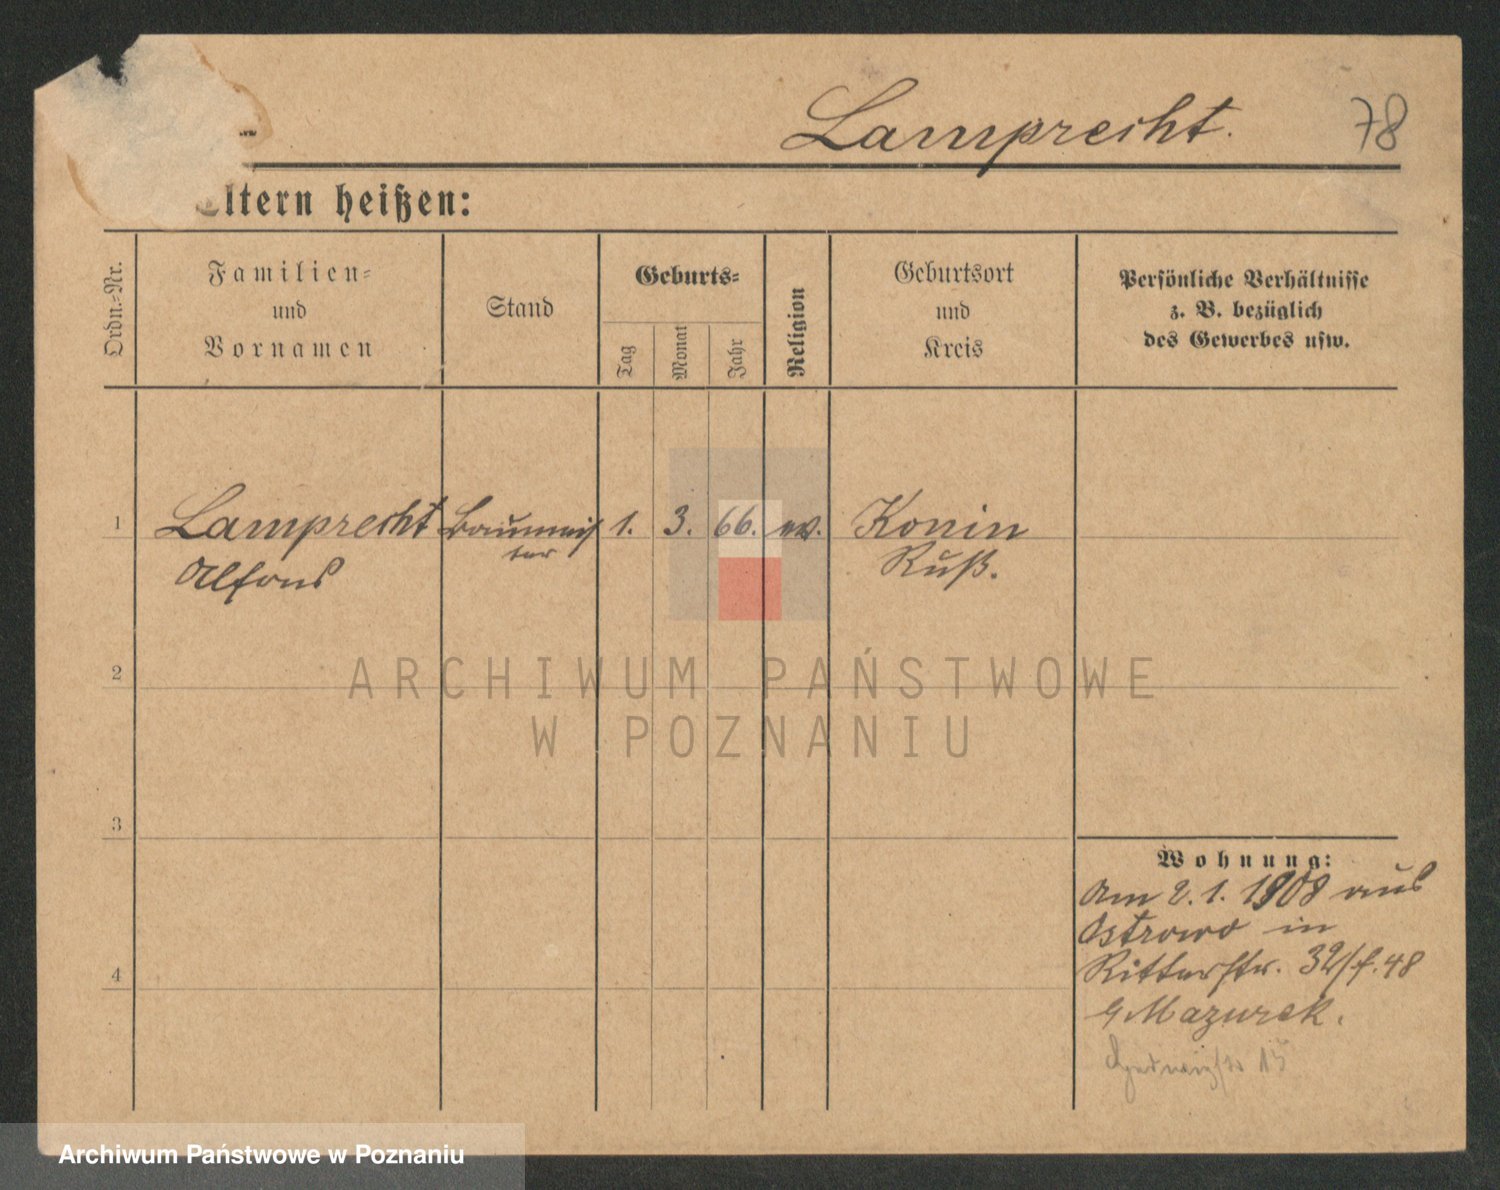 Lamprecht. 78
ltern heißen:
Ordn.-Nr.
Familien-
und
Vornamen
Stand
Geburts-
Tag
Monat
Jahr
Religion
Geburtsort
und
Kreis
Persönliche Verhältnisse
z. B. bezüglich
des Gewerbes usw.
1 Lamprecht Baumeis 1. 3. 66. ev. Konin
Alfons ter Ruß.
2
3
4
Wohnung:
Am 2. 1. 1908 aus
Ostrowo in
Ritterstr. 39/ f. 48
Mazurek.
15
ARCHIWUM PAŃSTWOWE
W POZNANIU
Archiwum Państwowe w Poznaniu